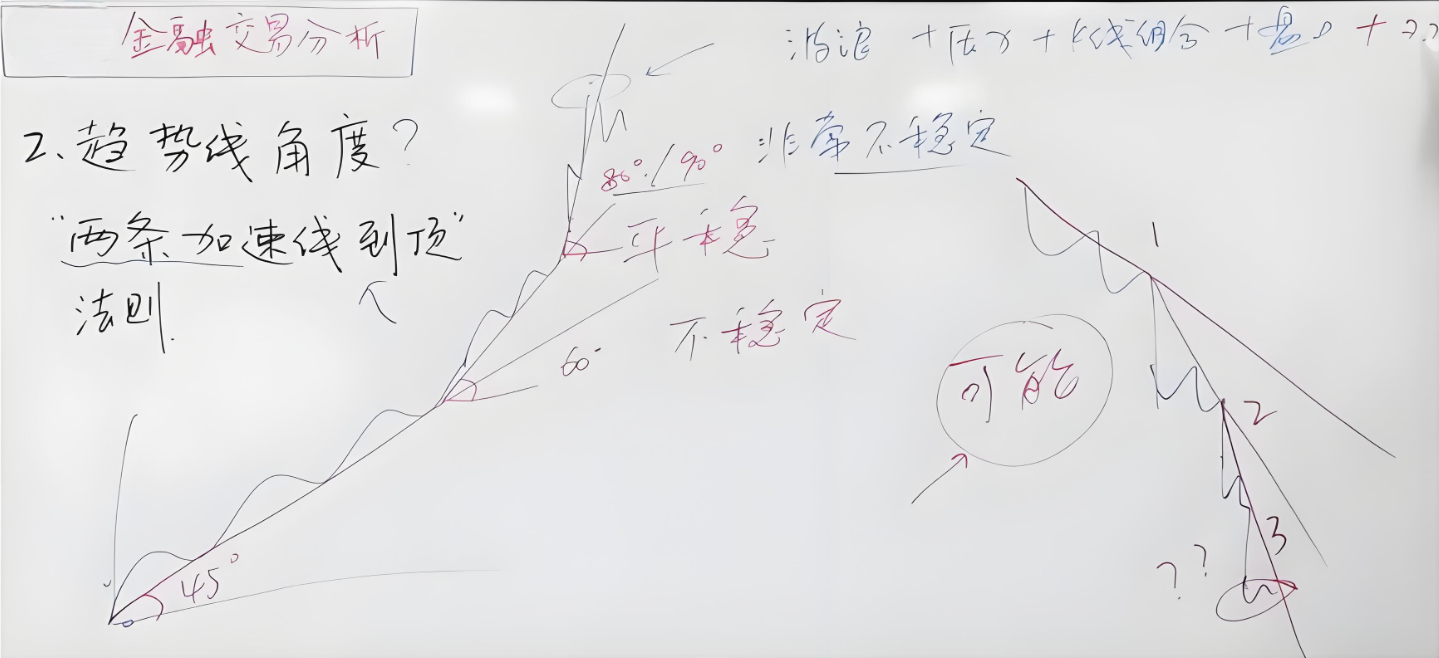 金融交易分析
波浪 + 压力 + K线组合 + 盘口 + ??
2、趋势线角度?
"两条加速线到顶"
法则.
80°/90° 非常不稳定
平稳
60° 不稳定
45°
可能
1
2
3
??